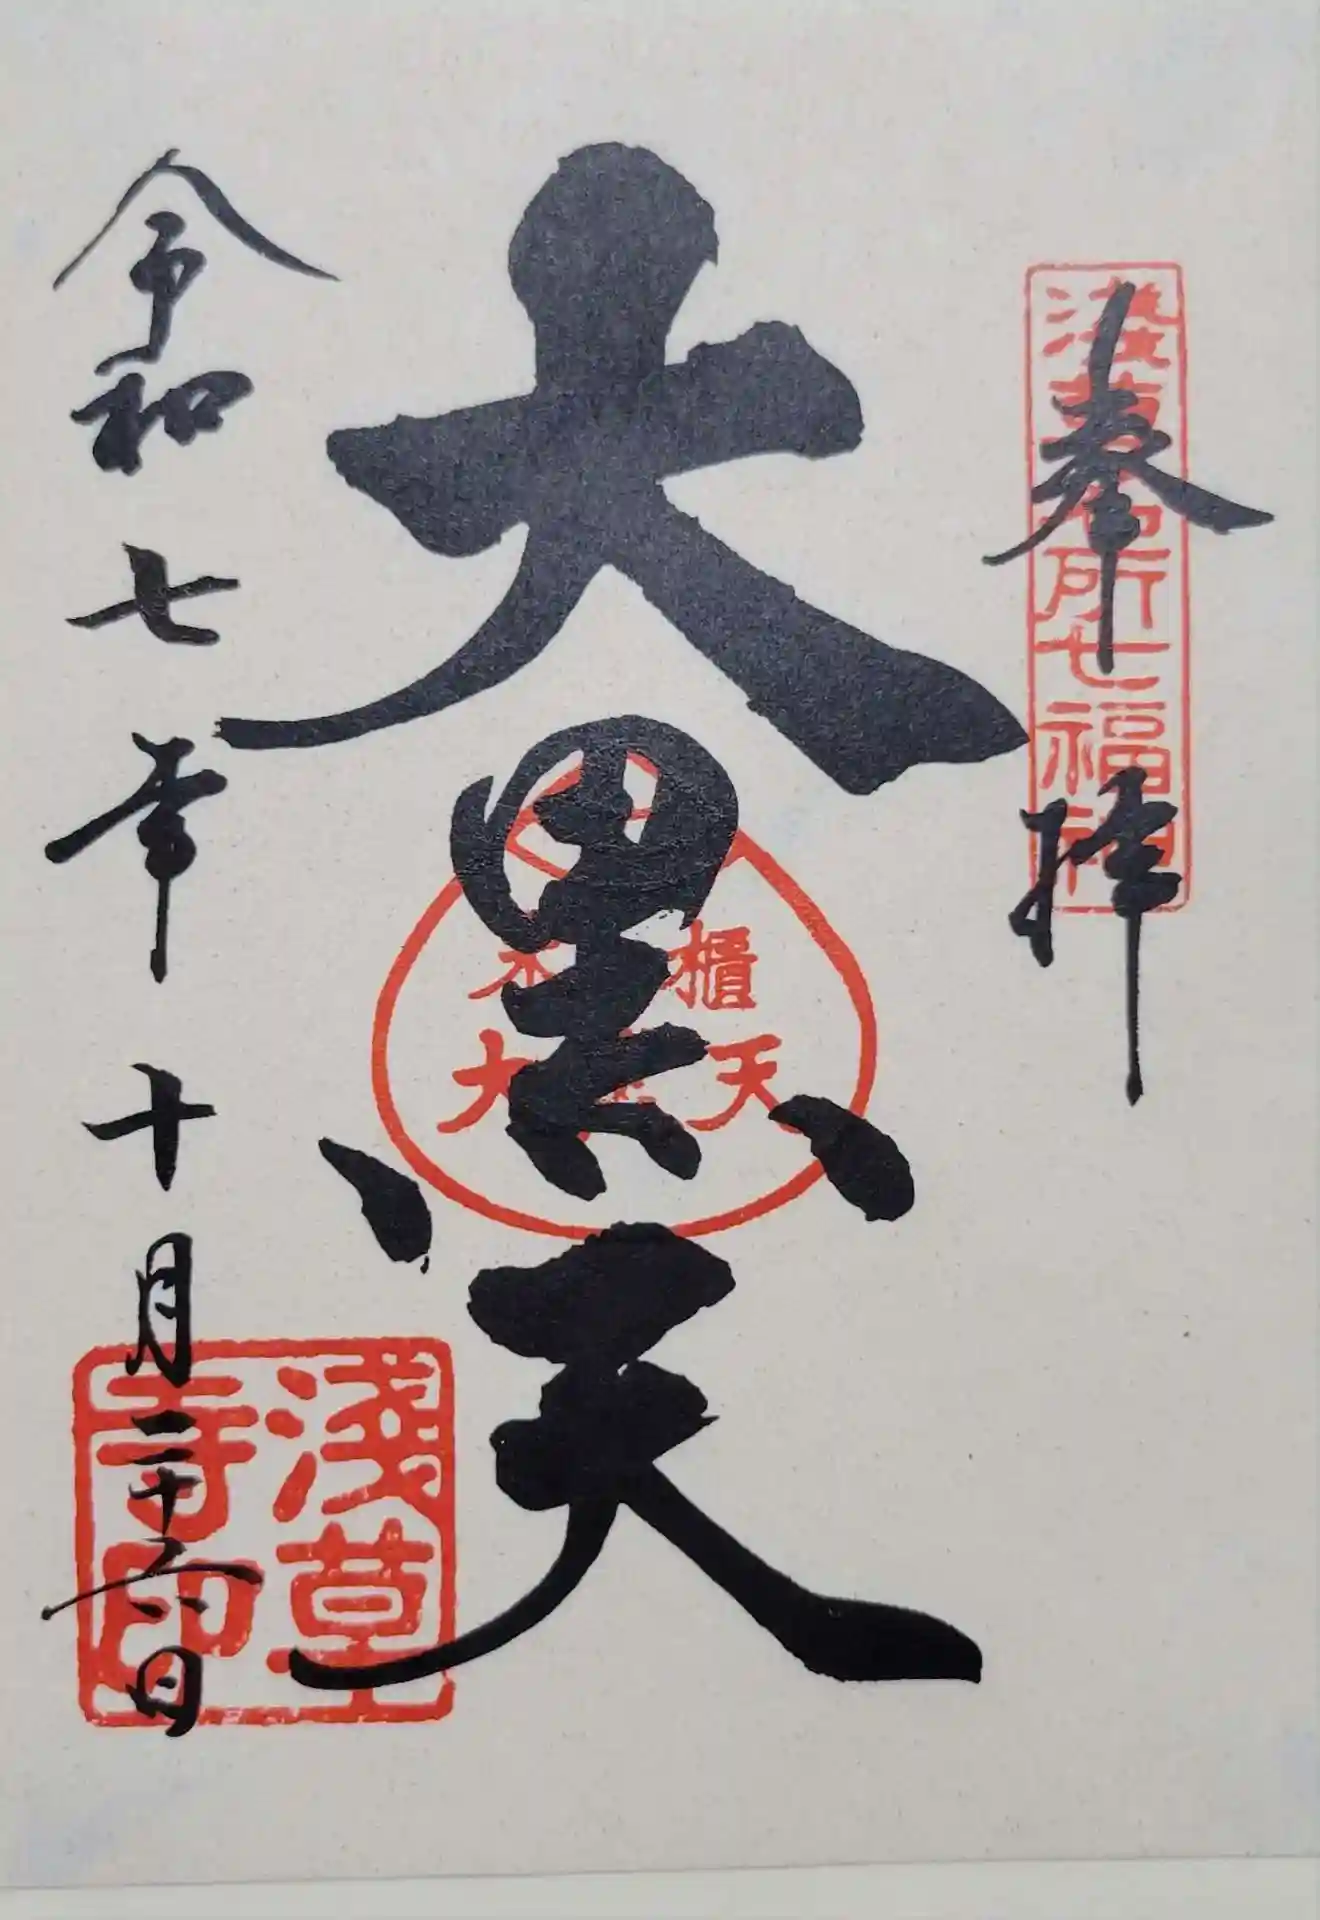 奉拝
淺草名所七福神
大黒天
米櫃
大黒天
令和七年十月二十六日
淺草
寺印